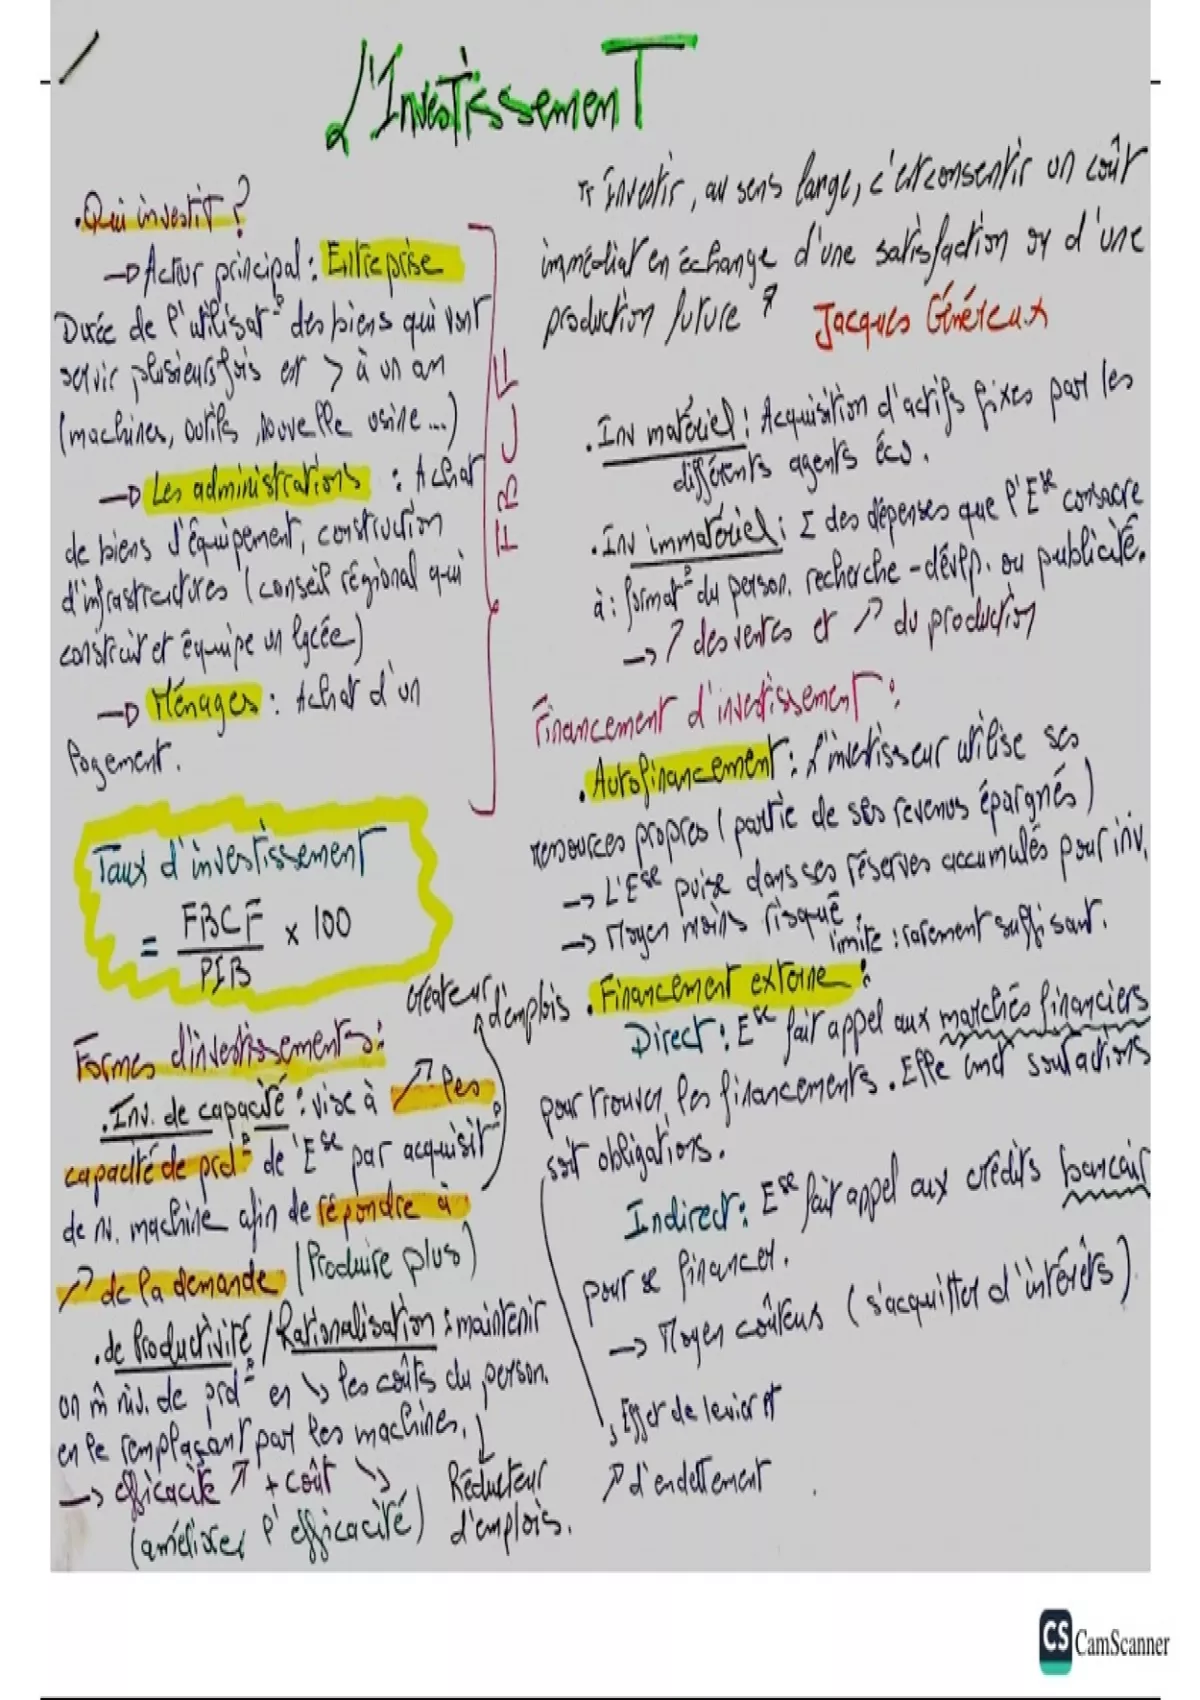 L'Investissement
.Qui investit ?
→ Acteur principal : Entreprise
Durée de l'utilisat° des biens qui vont
servir plusieurs fois est > à un an
(machines, outils, nouvelle usine...)
→ Les administrations : Achat
de biens d'équipement, construction
d'infrastructures (conseil régional qui
construit et équipe un lycée)
→ Ménages : Achat d'un
logement.
FBCF
Taux d'investissement
= FBCF / PIB x 100
Formes d'investissements :
créateur d'emplois
.Inv. de capacité : vise à ↗ les
capacité de prd° de l'Ese par acquisit°
de nv. machine afin de répondre à
↗ de la demande (Produire plus)
.de Productivité / Rationalisation : maintenir
un m̂ niv. de prd° en ↘ les coûts du person.
en le remplaçant par les machines.
→ efficacité ↗ + coût ↘
(améliorer l'efficacité)
Réducteur
d'emplois.
" Investir, au sens large, c'est consentir un coût
immédiat en échange d'une satisfaction ou d'une
production future " Jacques Généreux
.Inv matériel : Acquisition d'actifs fixes par les
différents agents éco.
.Inv immatériel : Σ des dépenses que l'Ese consacre
à : format° du person. recherche-dévlp. ou publicité.
→ ↗ des ventes et ↗ du production
Financement d'investissement :
.Autofinancement : L'investisseur utilise ses
ressources propres (partie de ses revenus épargnés)
→ L'Ese puise dans ses réserves accumulés pour inv.
→ Moyen moins risqué.
limite : rarement suffisant.
.Financement externe :
Direct : Ese fait appel aux marchés financiers
pour trouver les financements. Elle émet soit actions
soit obligations.
Indirect : Ese fait appel aux crédits bancair
pour se financer.
→ Moyen coûteux (s'acquitter d'intérêts)
↘ Effet de levier et
↗ d'endettement
CS CamScanner